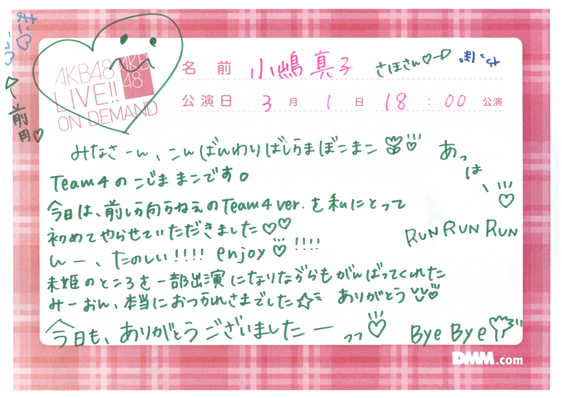 AKB48
LIVE!!
ON DEMAND
AKB
48
名前 小嶋真子
公演日 3月1日 18:00公演
前用♡
みなさーん、こんばんわりばしうまぼこまこ
Team4のこじままこです。
今日は、前しか向かねえのTeam4 ver.を私にとって
初めてやらせていただきました♡♡
んー、たのしい!!!! enjoy♡!!!!
未姫のところを一部出演になりながらもがんばってくれた
みーおん、本当におつかれさまでした☆ ありがとう
今日も、ありがとうございましたー
あっ
は
、
RUN RUN RUN
Bye Bye
DMM.com